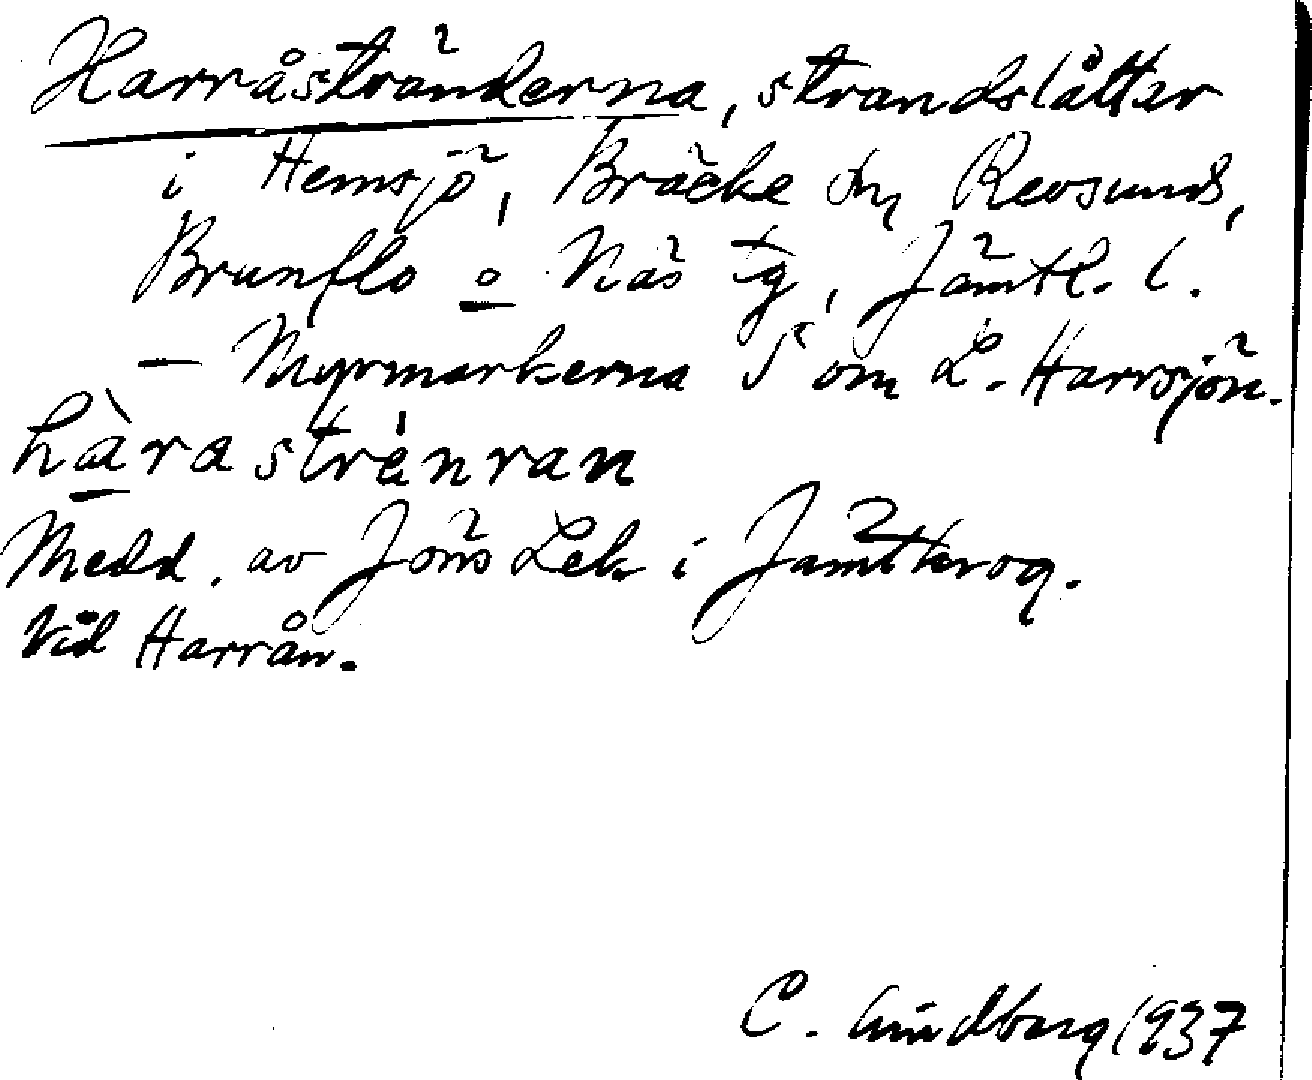 Harråstränderna, strandslåtter
i Hemsjö, Bräcke sn, Revsunds,
Brunflo o Näs tg, Jämtl. l.
— Myrmarkerna S om L. Harrsjön.
hàrastrἁnran
Medd. av Jöns Lek i Jämtkrog.
Vid Harrån.
C. Lindberg 1937